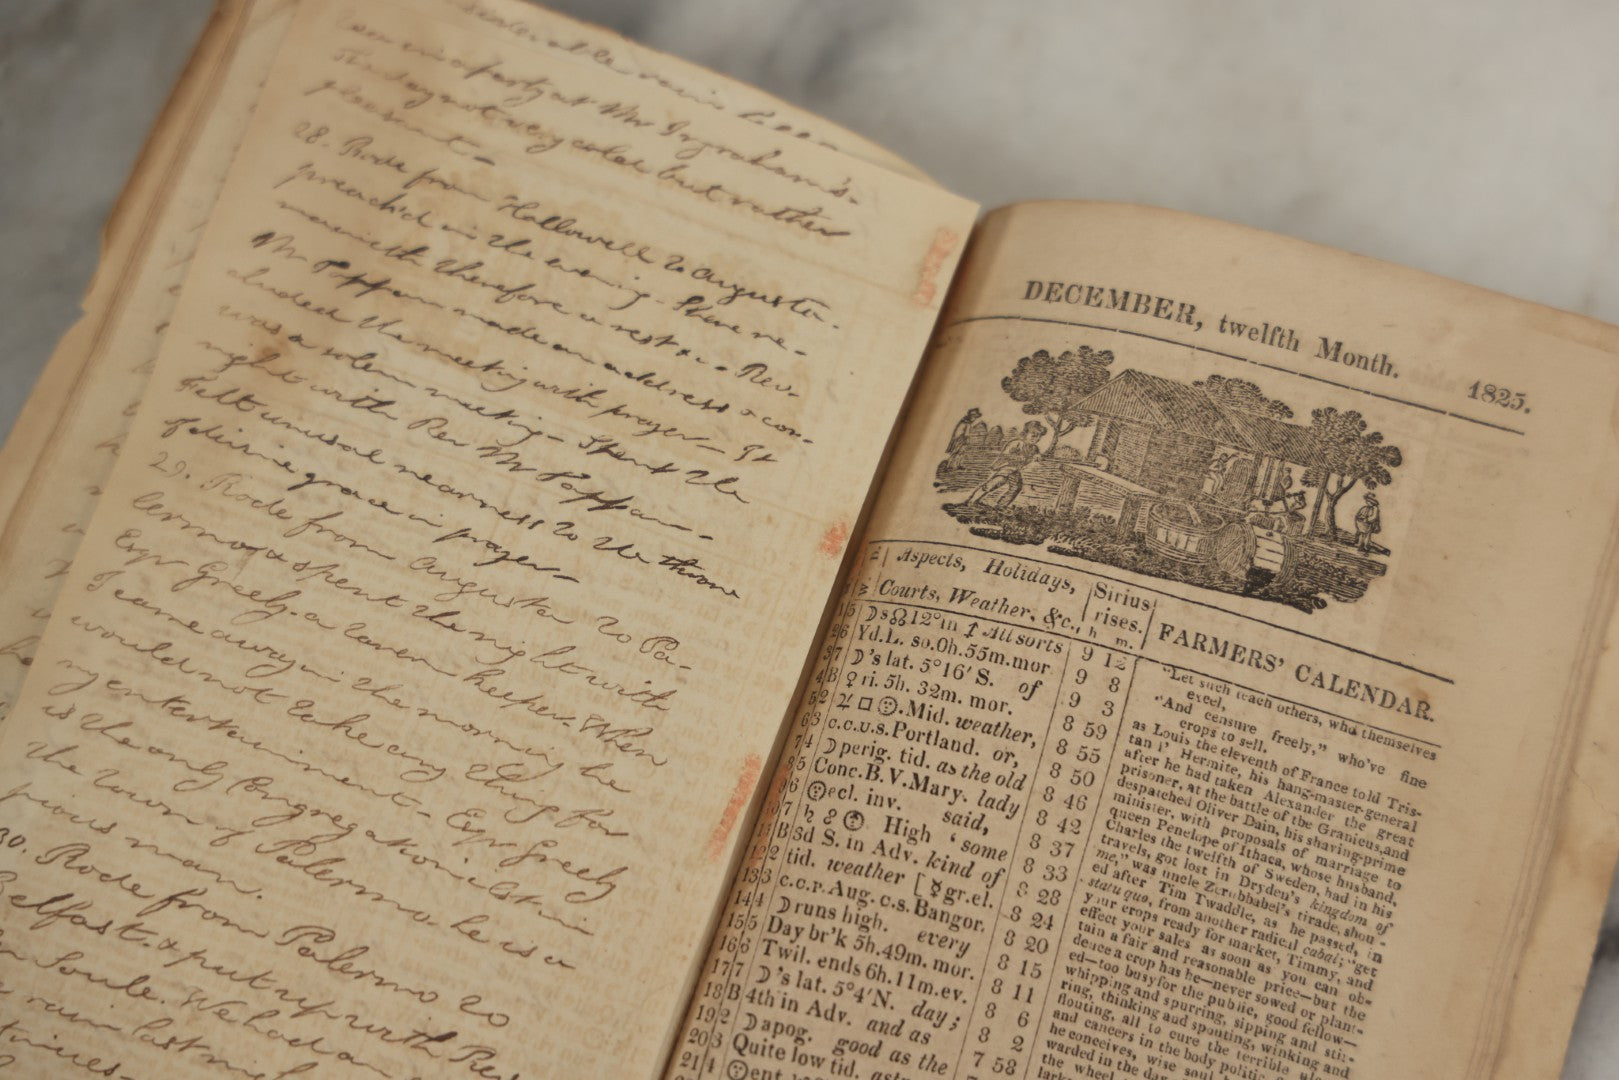 considerable rain been
at Mr Ingraham's.
The day not very cold but rather
pleasant —
28. Rode from Hallowell to Augusta.
preach'd in the evening. There re-
maineth therefore a rest &c — Rev.
Mr Tappan made an address & con-
cluded the meeting with prayer — It
was a solemn meeting — Spent the
night with Rev Mr Tappan —
Felt unusual nearness to the throne
of divine grace in prayer —
29. Rode from Augusta to Pa-
lermo & spent the night with
Esqr Greely. a tavern keeper. When
I came away in the morning he
would not take any thing for
my entertainment — Esqr Greely
is the only Congregationalist in
the town of Palermo. he is a
pious man.
30. Rode from Palermo to
Belfast. & put up with Rev
Soule. We had a
rain last
DECEMBER, twelfth Month. 1825.
Aspects, Holidays, Sirius
Courts, Weather, &c., rises.
h m.
1 5 ☽ s ☊ 12° in ♐ All sorts 9 12
2 6 Yd. L. so. 0h. 55m. mor 9 8
3 7 ☽'s lat. 5° 16' S. of 9 3
4 B ♀ ri. 5h. 32m. mor. 8 59
5 2 ♃ □ ☉. Mid. weather, 8 55
6 3 c.c.u.s. Portland. or, 8 50
7 4 ☽ perig. tid. as the old 8 46
8 5 Conc. B. V. Mary. lady 8 42
9 6 ☉ ecl. inv. said, 8 37
10 7 ♄ ☍ ☉. High 'some 8 33
11 B 3d S. in Adv. kind of 8 28
12 2 tid. weather [☿ gr. el. 8 24
13 3 c.c.r. Aug. c.s. Bangor. 8 20
14 4 ☽ runs high. every 8 15
15 5 Day br'k 5h. 49m. mor. 8 11
16 6 Twil. ends 6h. 11m. ev. 8 6
17 7 ☽'s lat. 5° 4' N. day; 8 2
18 B 4th in Adv. and as 7 58
19 2 ☽ apog. good as the
20 3 Quite low tid.
21 4 ☉ ent.
FARMERS' CALENDAR.
"Let such teach others, who themselves
excel,
"And censure freely," who've fine
crops to sell.
as Louis the eleventh of France told Tris-
tan l' Hermite, his hang-master-general
after he had taken Alexander the great
prisoner, at the battle of the Granicus, and
despatched Oliver Dain, his shaving-prime
minister, with proposals of marriage to
queen Penelope of Ithaca, whose husband,
Charles the twelfth of Sweden, had in his
travels, got lost in Dryden's kingdom of
me," was uncle Zerubbabel's tirade, shou-
ed after Tim Twaddle, as he passed, in
statu quo, from another radical cabal; "get
your crops ready for market, Timmy, and
effect your sales as soon as you can ob-
tain a fair and reasonable price—but the
deuce a crop has he—never sowed or plant-
ed—too busy for the public, good fellow—
whipping and spurring, sipping and stir-
ring, thinking and spouting, winking and
flouting, all to cure the terrible
and cancers in the body
he conceives, wise soul
warded in the
the wheel